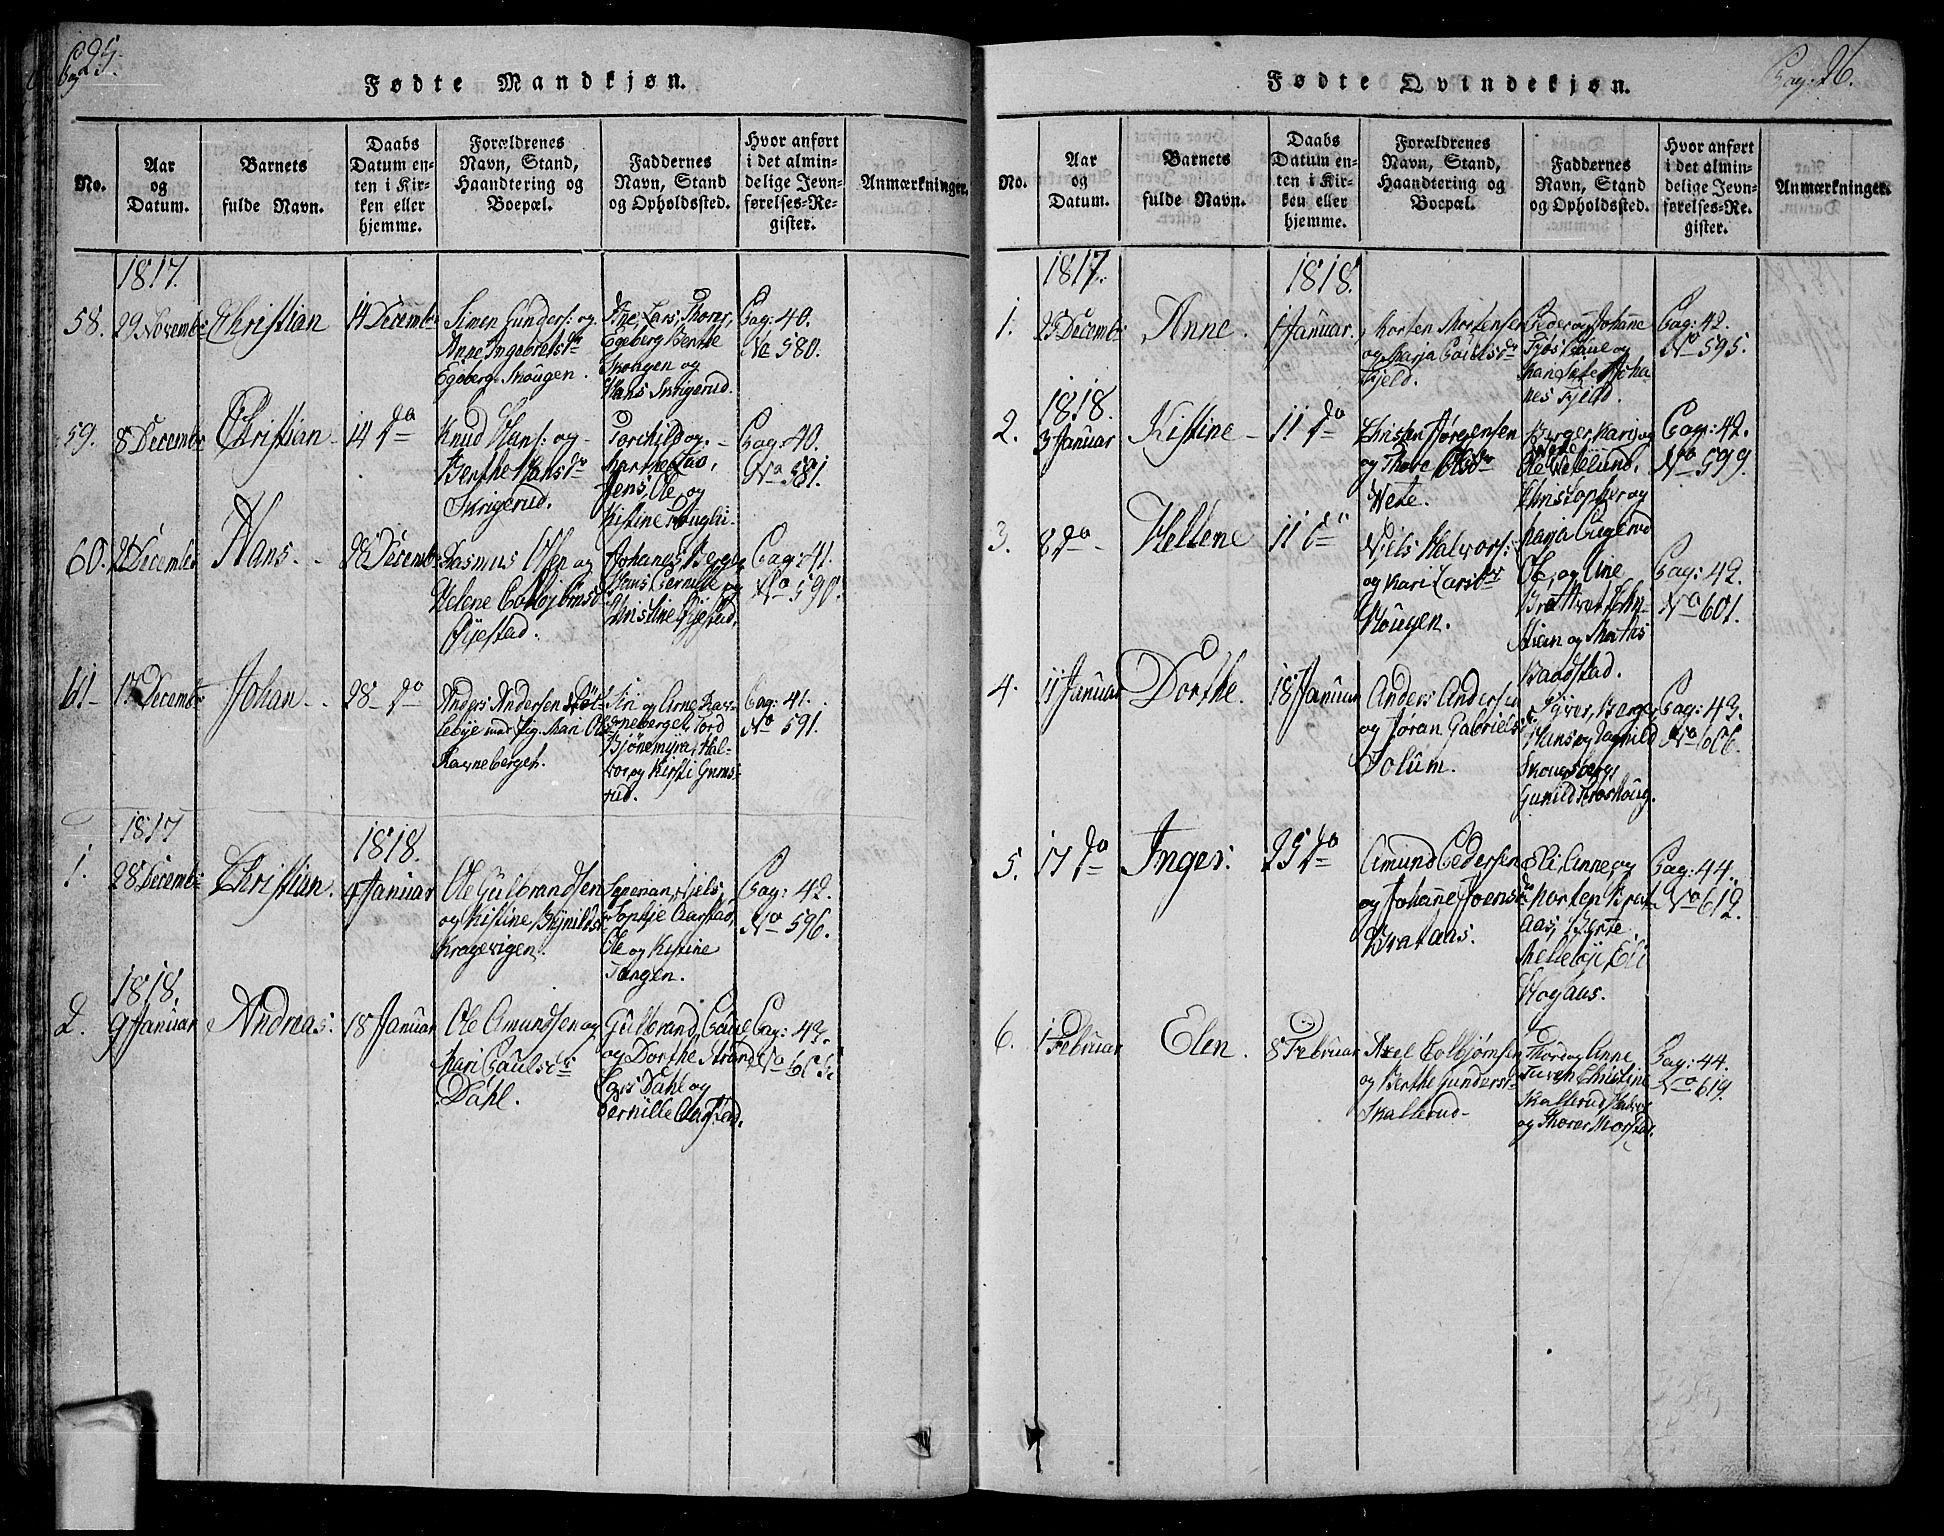 Pag: 25.
Fødte Mandkjøn.
No.
Aar
og
Datum.
Barnets
fulde Navn.
Daabs
Datum en-
ten i Kir-
ken eller
hjemme.
Forældrenes
Navn, Stand,
Haandtering og
Boepæl.
Faddernes
Navn, Stand
og Opholdssted.
Hvor anført
i det almin-
delige Jevn-
førelses-Re-
gister.
Anmærkninger.
1817.
58.
29 Novembr
Christian
14 Decembr
Simen Gunders: og
Anne Ingebretsdr
Egeberg-Skougen.
Ane, Lars, Thorer,
Egeberg, Berthe
Skougen og
Hans Skrigerud.
Pag: 40.
No 580.
59.
8 Decembr
Christian
14 do
Knud Hans: og
Berthe Hansdr
Skrigerud.
Torchild og
Marthe
Jens, Ole og
Kistine
Pag: 40.
No 581.
60.
Decembr
Hans
28 Decembr
Rasmus Olsen og
Helene Colbjørnsdr
Øyestad.
Johanes Berger
Hans Pernille og
Christine Øyestad.
Pag: 41.
No 590.
61
17 Decembr
Johan
28 do
Anders Andersen
lebye med Pig. Mari Ols
Ravnebergen.
Siri og Arne Rav-
neberget, Tord
Bjönemyra, Hal-
vor og Kirsti Grims-
rud.
Pag: 41.
No 591.
1817
1.
28 Decembr
Christian.
1818.
4 Januar
Ole Gulbrandsen
og Kistine Brynilds
Kragevigen.
Niels,
Sophje Aarstad,
Ole og Kistine
Tangen.
Pag: 42.
No 596.
1818.
2.
9 Januar
Andreas.
18 Januar
Ole Amundsen og
Mari Paulsdr
Dahl.
Gulbrand, Paul
og Dorthe Strand
Lars Dahl og
Pernille Aarstad.
Pag: 43.
Pag: 26.
Fødte Qvindekjøn.
No.
Aar
og
Datum.
Barnets
fulde Navn.
Daabs
Datum en-
ten i Kir-
ken eller
hjemme.
Forældrenes
Navn, Stand,
Haandtering og
Boepæl.
Faddernes
Navn, Stand
og Opholdssted.
Hvor anført
i det almin-
delige Jevn-
førelses-Re-
gister.
Anmærkninger.
1817.
1.
25 Decembr
Anne.
1818.
1 Januar.
Morten Mortensen
og Marja Povelsdr
Fjeld.
Peder og Johane
Paul og
Joha-
nes Fjeld.
Pag: 42.
No 595.
1818.
2.
3 Januar
Kistine
11 do
Christen Jørgensen
og Thore Olsdr
Wete.
Berger, Karj og
Wete
Ole Wetelund.
Christopher og
Marja
Pag: 42.
No 599.
3.
8 do
Hellene
11
Njels Halvors:
og Kari Larsdr
Hougen.
Ole, og Line
og Mathis
Baadstad.
Pag: 42.
No 601.
4.
11 Januar
Dorthe.
18 Januar
Anders Andersen
og Jøran Gabriels
Solum.
Syver, Berger
Hans og Ragnild
Skougsberg
Gunild
Pag: 43.
No 606.
5.
17 do
Inger.
25 do
Amund Pedersen
og Johane Joensdr
Brataas.
Eli, Anne, og
Morten Brat-
aas, Berte
Eli
Hogaas.
Pag: 44.
No 612.
6.
1 Februar
Elen.
8 Februar
Axel Colbjørnsen
og Berthe Gunders
Skallerud
Thord og Anne
Christine
Skallerud, Halvor
og Thorer Morstad.
Pag: 44.
No 619.